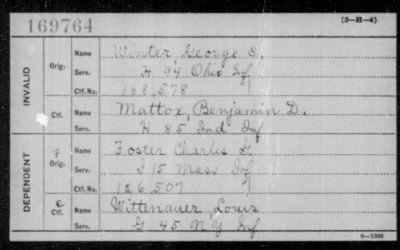 169764 (3-H-4)
INVALID
Orig.
Name Winter, George C.
Serv. H 94 Ohio Inf
Ctf. No. 168,578
Ctf.
Name Mattox, Benjamin D.
Serv. H 85 Ind Inf
DEPENDENT
Orig.
Name Foster Charles
Serv. I 15 Mass Inf
Ctf. No. 126,507
Ctf.
Name Wittenauer, Louis
Serv. G 45 N Y Inf